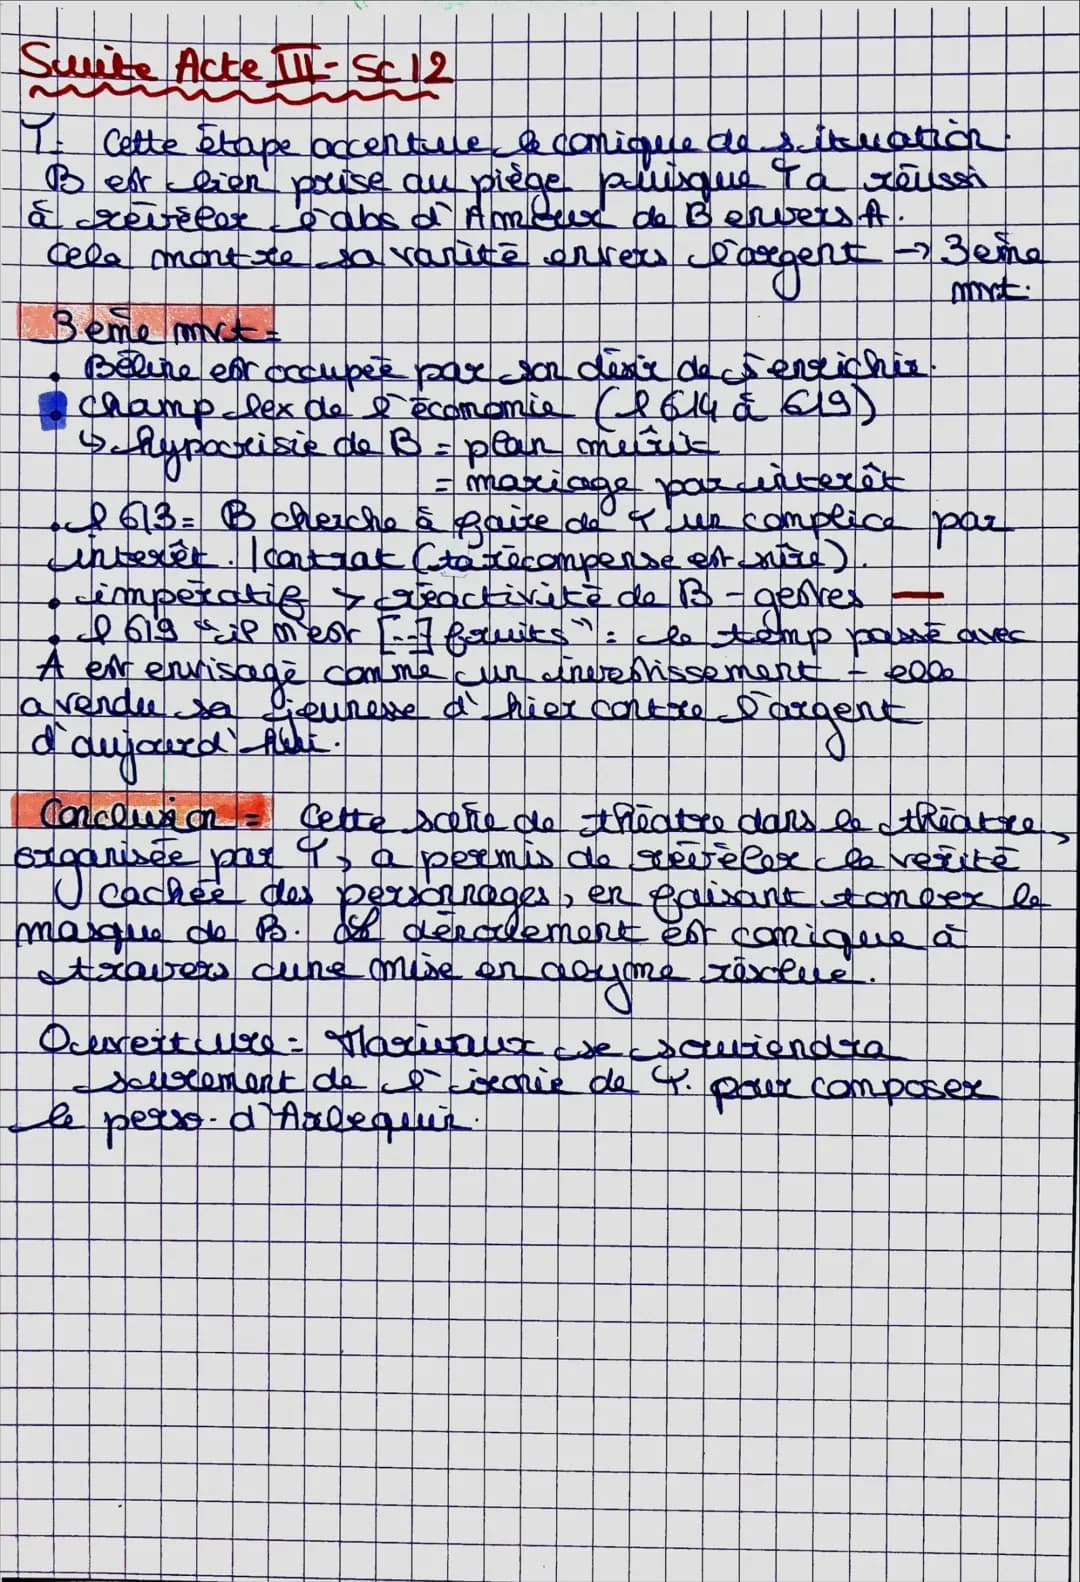 Suite Acte III - Sc 12
T: Cette étape accentue le comique de situation.
B est bien prise au piège puisque T a réussi
à révéler l'abs d'Amour de B envers A.
Cela montre sa vanité envers l'argent → 3eme
mvt.
3eme mvt =
• Béline est occupée par son désir de s'enrichir.
• champ lex de l'économie (l 614 à 619)
↳ hypocrisie de B = plan meurit
= mariage par interêt
• l 613 = B cherche à faire de T un complice par
interêt. / contrat (ta récompense est sûre).
• impératif > réactivité de B - gestes —
• l 619 "il m'est [...] fruits" : le temp passé avec
A est envisagé comme un investissement - elle
a vendu sa jeunesse d'hier contre l'argent
d'aujourd'hui.
Conclusion = Cette scène de théâtre dans le théâtre,
organisée par T, a permis de révéler la verité
cachée des personnages, en faisant tomber le
masque de B. Le déroulement est comique à
travers une mise en abyme résolue.
Ouverture = Marivaux se souviendra
surement de l'ironie de T. pour composer
le perso. d'Arlequin.